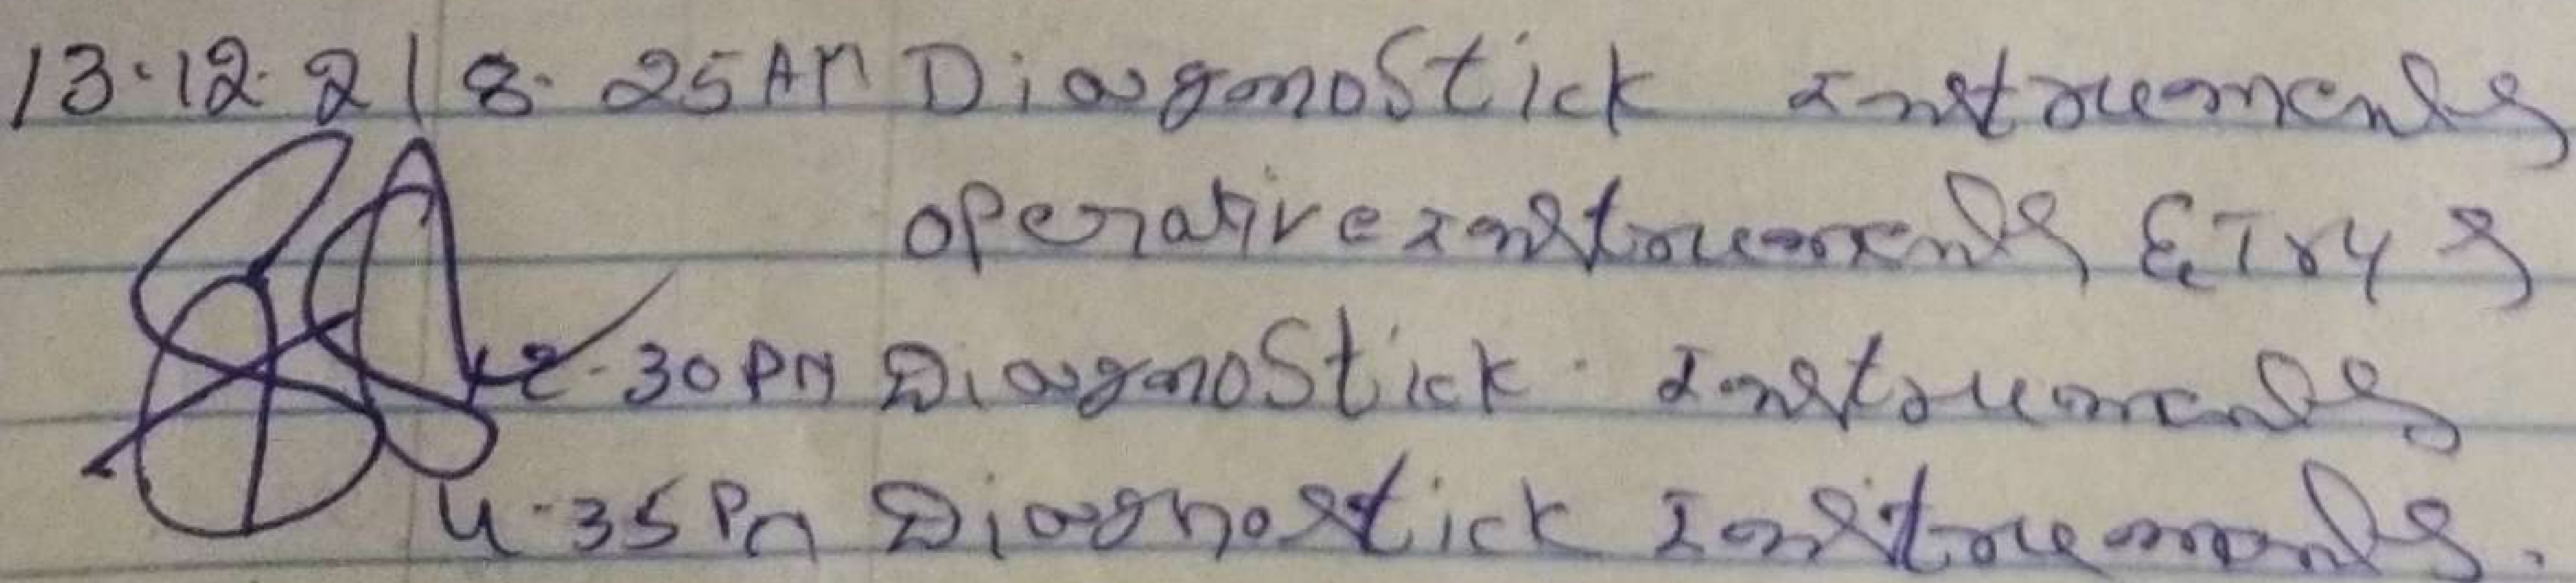 13.12.21 8.25 AM Diagnostick Instruments
operative instruments & Trys
2-30 PM Diagnostick Instruments
4-35 Pm Diagnostick Instruments.